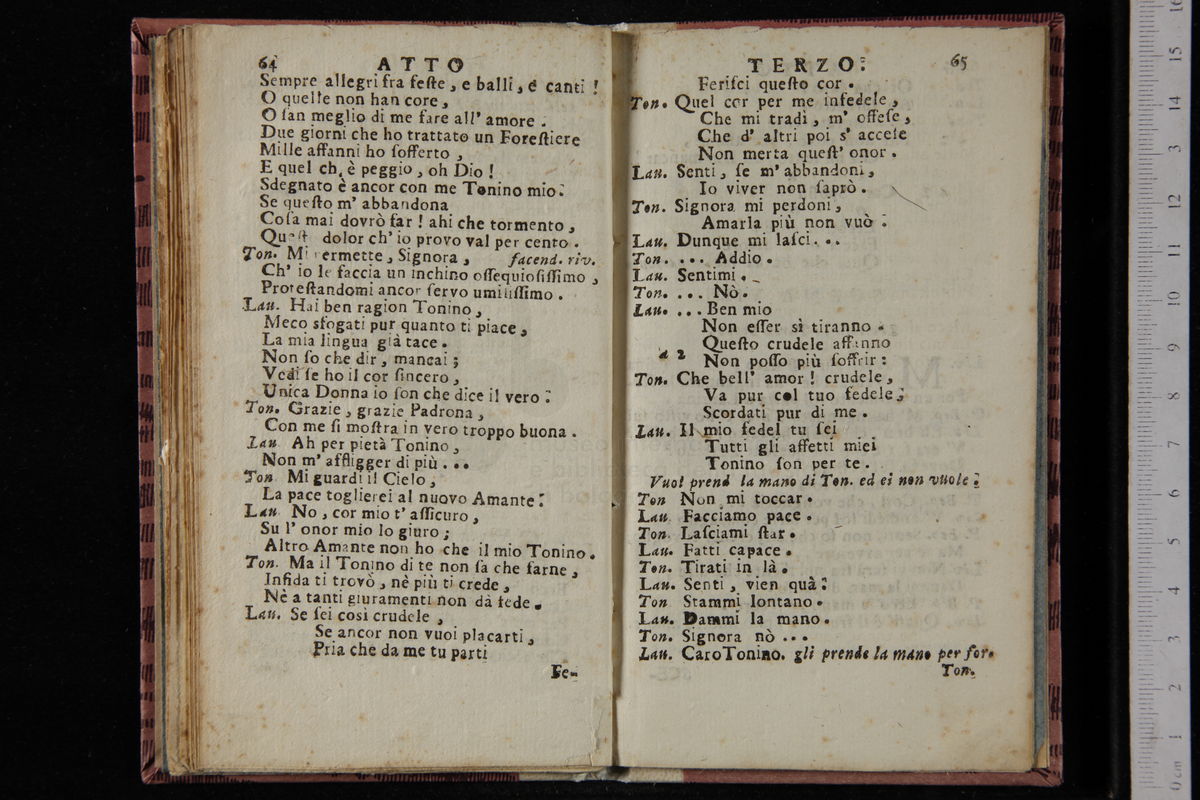 64 ATTO
Sempre allegri fra feſte, e balli, e canti!
O queſte non han core,
O ſan meglio di me fare all' amore.
Due giorni che ho trattato un Foreſtiere
Mille affanni ho ſofferto,
E quel ch' è peggio, oh Dio!
Sdegnato è ancor con me Tonino mio:
Se queſto m' abbandona
Coſa mai dovrò far! ahi che tormento,
Queſt dolor ch' io provo val per cento.
Ton. Mi permette, Signora, facend. riv.
Ch' io le faccia un inchino oſſequioſiſſimo,
Proteſtandomi ancor ſervo umiliſſimo.
Lau. Hai ben ragion Tonino,
Meco sfogati pur quanto ti piace,
La mia lingua già tace.
Non ſo che dir, mancai;
Vedi ſe ho il cor ſincero,
Unica Donna io ſon che dice il vero:
Ton. Grazie, grazie Padrona,
Con me ſi moſtra in vero troppo buona.
Lau. Ah per pietà Tonino,
Non m' affligger di più...
Ton. Mi guardi il Cielo,
La pace toglierei al nuovo Amante:
Lau. No, cor mio t' aſſicuro,
Su l' onor mio lo giuro;
Altro Amante non ho che il mio Tonino.
Ton. Ma il Tonino di te non ſa che farne,
Infida ti trovò, nè più ti crede,
Nè a tanti giuramenti non dà fede.
Lau. Se ſei così crudele,
Se ancor non vuoi placarti,
Pria che da me tu parti
Fe-
TERZO: 65
Feriſci queſto cor.
Ton. Quel cor per me infedele,
Che mi tradì, m' offeſe,
Che d' altri poi s' acceſe
Non merta queſt' onor.
Lau. Senti, ſe m' abbandoni,
Io viver non ſaprò.
Ton. Signora mi perdoni,
Amarla più non vuò:
Lau. Dunque mi laſci...
Ton. ... Addio.
Lau. Sentimi..
Ton. ... Nò.
Lau. ... Ben mio
Non eſſer sì tiranno.
Queſto crudele affanno
a 2 Non poſſo più ſoffrir:
Ton. Che bell' amor! crudele,
Va pur col tuo fedele;
Scordati pur di me.
Lau. Il mio fedel tu ſei
Tutti gli affetti miei
Tonino ſon per te.
Vuol prend la mano di Ton. ed ei non vuole:
Ton Non mi toccar.
Lau. Facciamo pace.
Ton. Laſciami ſtar.
Lau. Fatti capace.
Ton. Tirati in là.
Lau. Senti, vien quà:
Ton Stammi lontano.
Lau. Dammi la mano.
Ton. Signora nò...
Lau. Caro Tonino. gli prende la mano per for.
Ton.